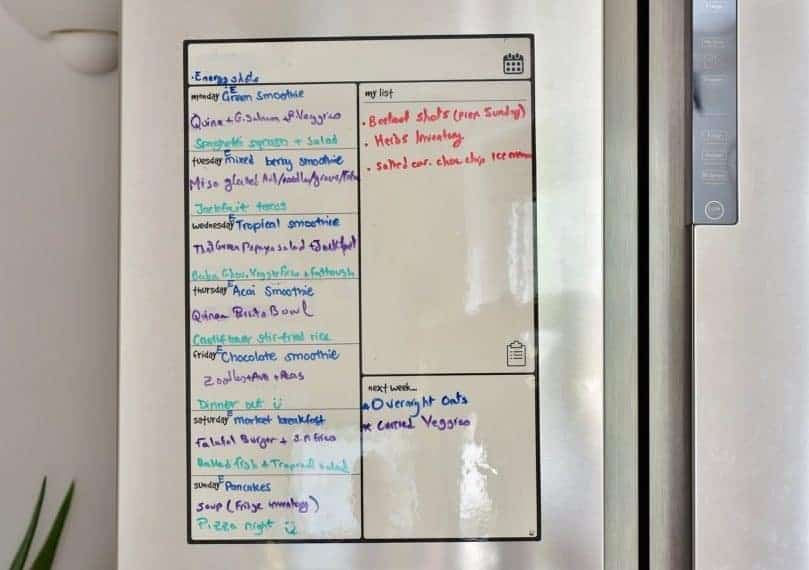 . Energy shots
monday E Green Smoothie
Quinoa + G. Salmon + Veggies
Spaghetti squash + Salad
tuesday E mixed berry smoothie
Miso glazed
Jackfruit tacos
wednesday E Tropical smoothie
Thai Green Papaya salad +
Baba Ghan. Veggie + Fattoush
thursday E Acai Smoothie
Quinoa Bowl
Cauliflower stir-fried rice
friday E Chocolate smoothie
Zoodles + Avo + Peas
Dinner out
saturday E market breakfast
Falafal Burger +
Baked fish + Tropical salad
sunday E Pancakes
Soup (Fridge inventory)
Pizza night
my list
. Beetroot shots (prep Sunday)
. Herbs Inventory
. Salted car. choc chip Ice
next week...
Overnight Oats
Veggies